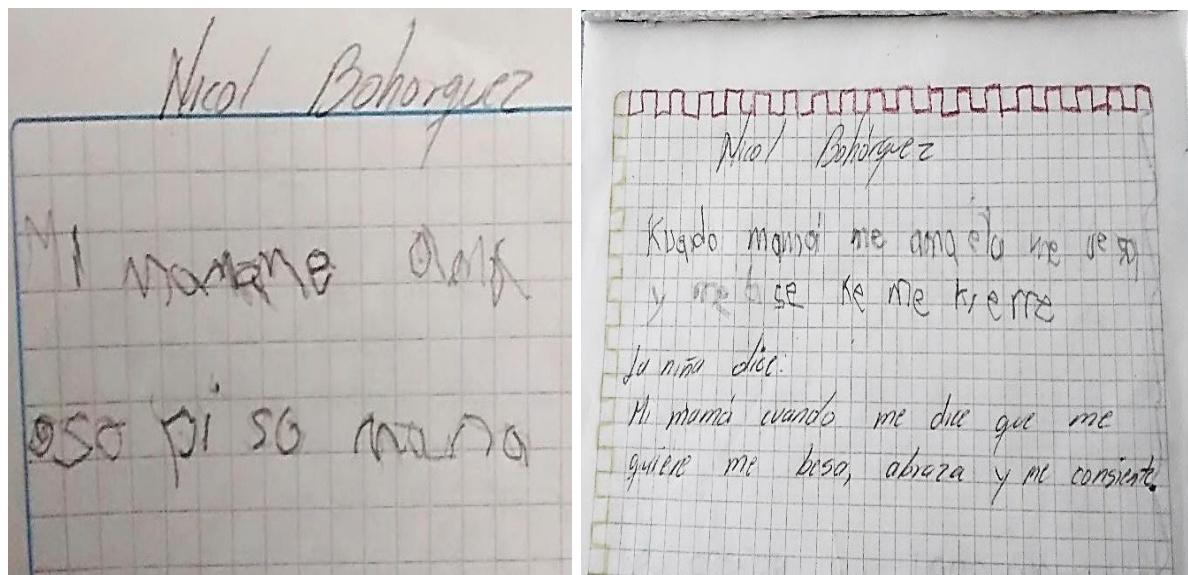 Nicol Bohorquez
Mi mamame ama
oso piso mana
Nicol Bohórquez
Kuado mamá me ama ela me vesa
y me dise ke me kiere
La niña dice:
Mi mamá cuando me dice que me
quiere me besa, abraza y me consiente.